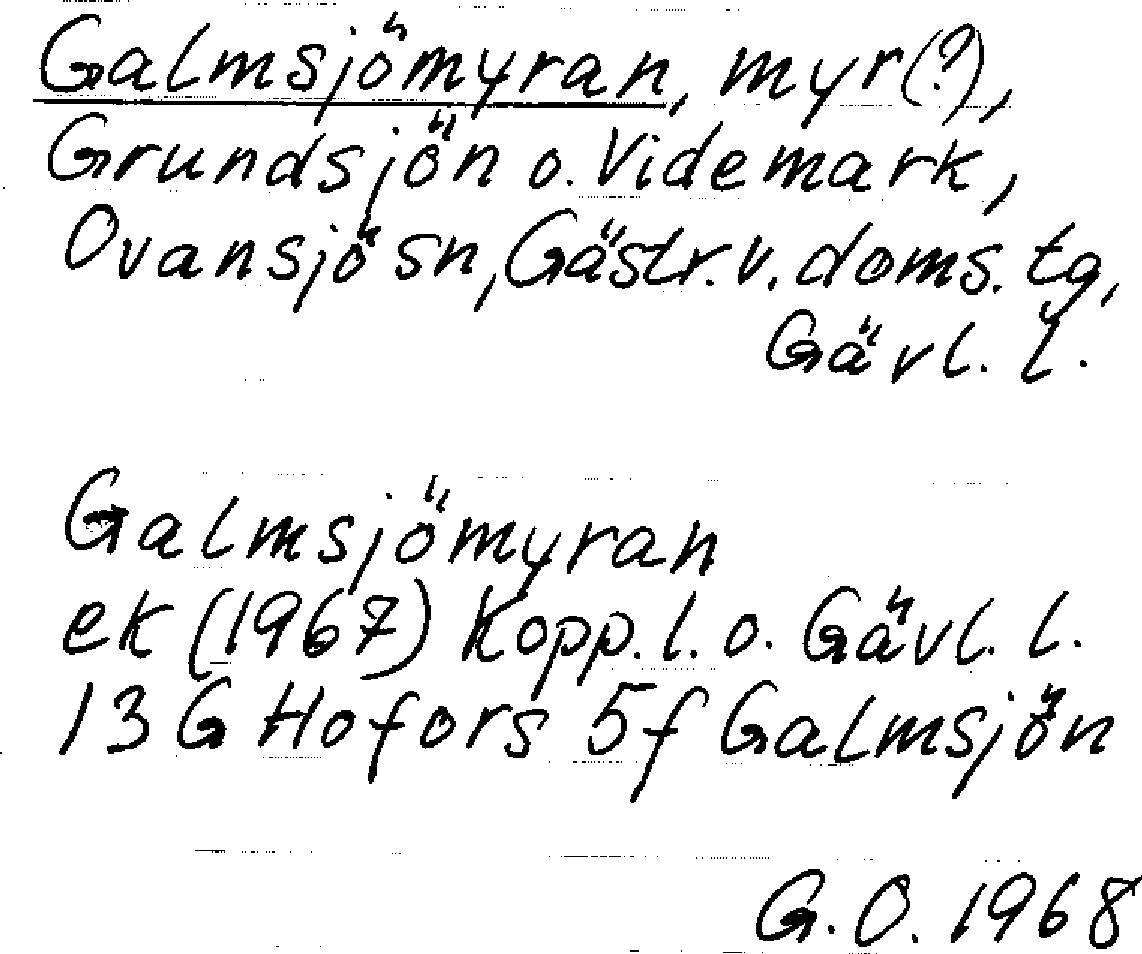 Galmsjömyran, myr(?),
Grundsjön o. Videmark,
Ovansjö sn, Gästr. v. doms. tg,
Gävl. l.
Galmsjömyran
ek (1967) Kopp. l. o. Gävl. l.
13 G Hofors 5f Galmsjön
G.O. 1968